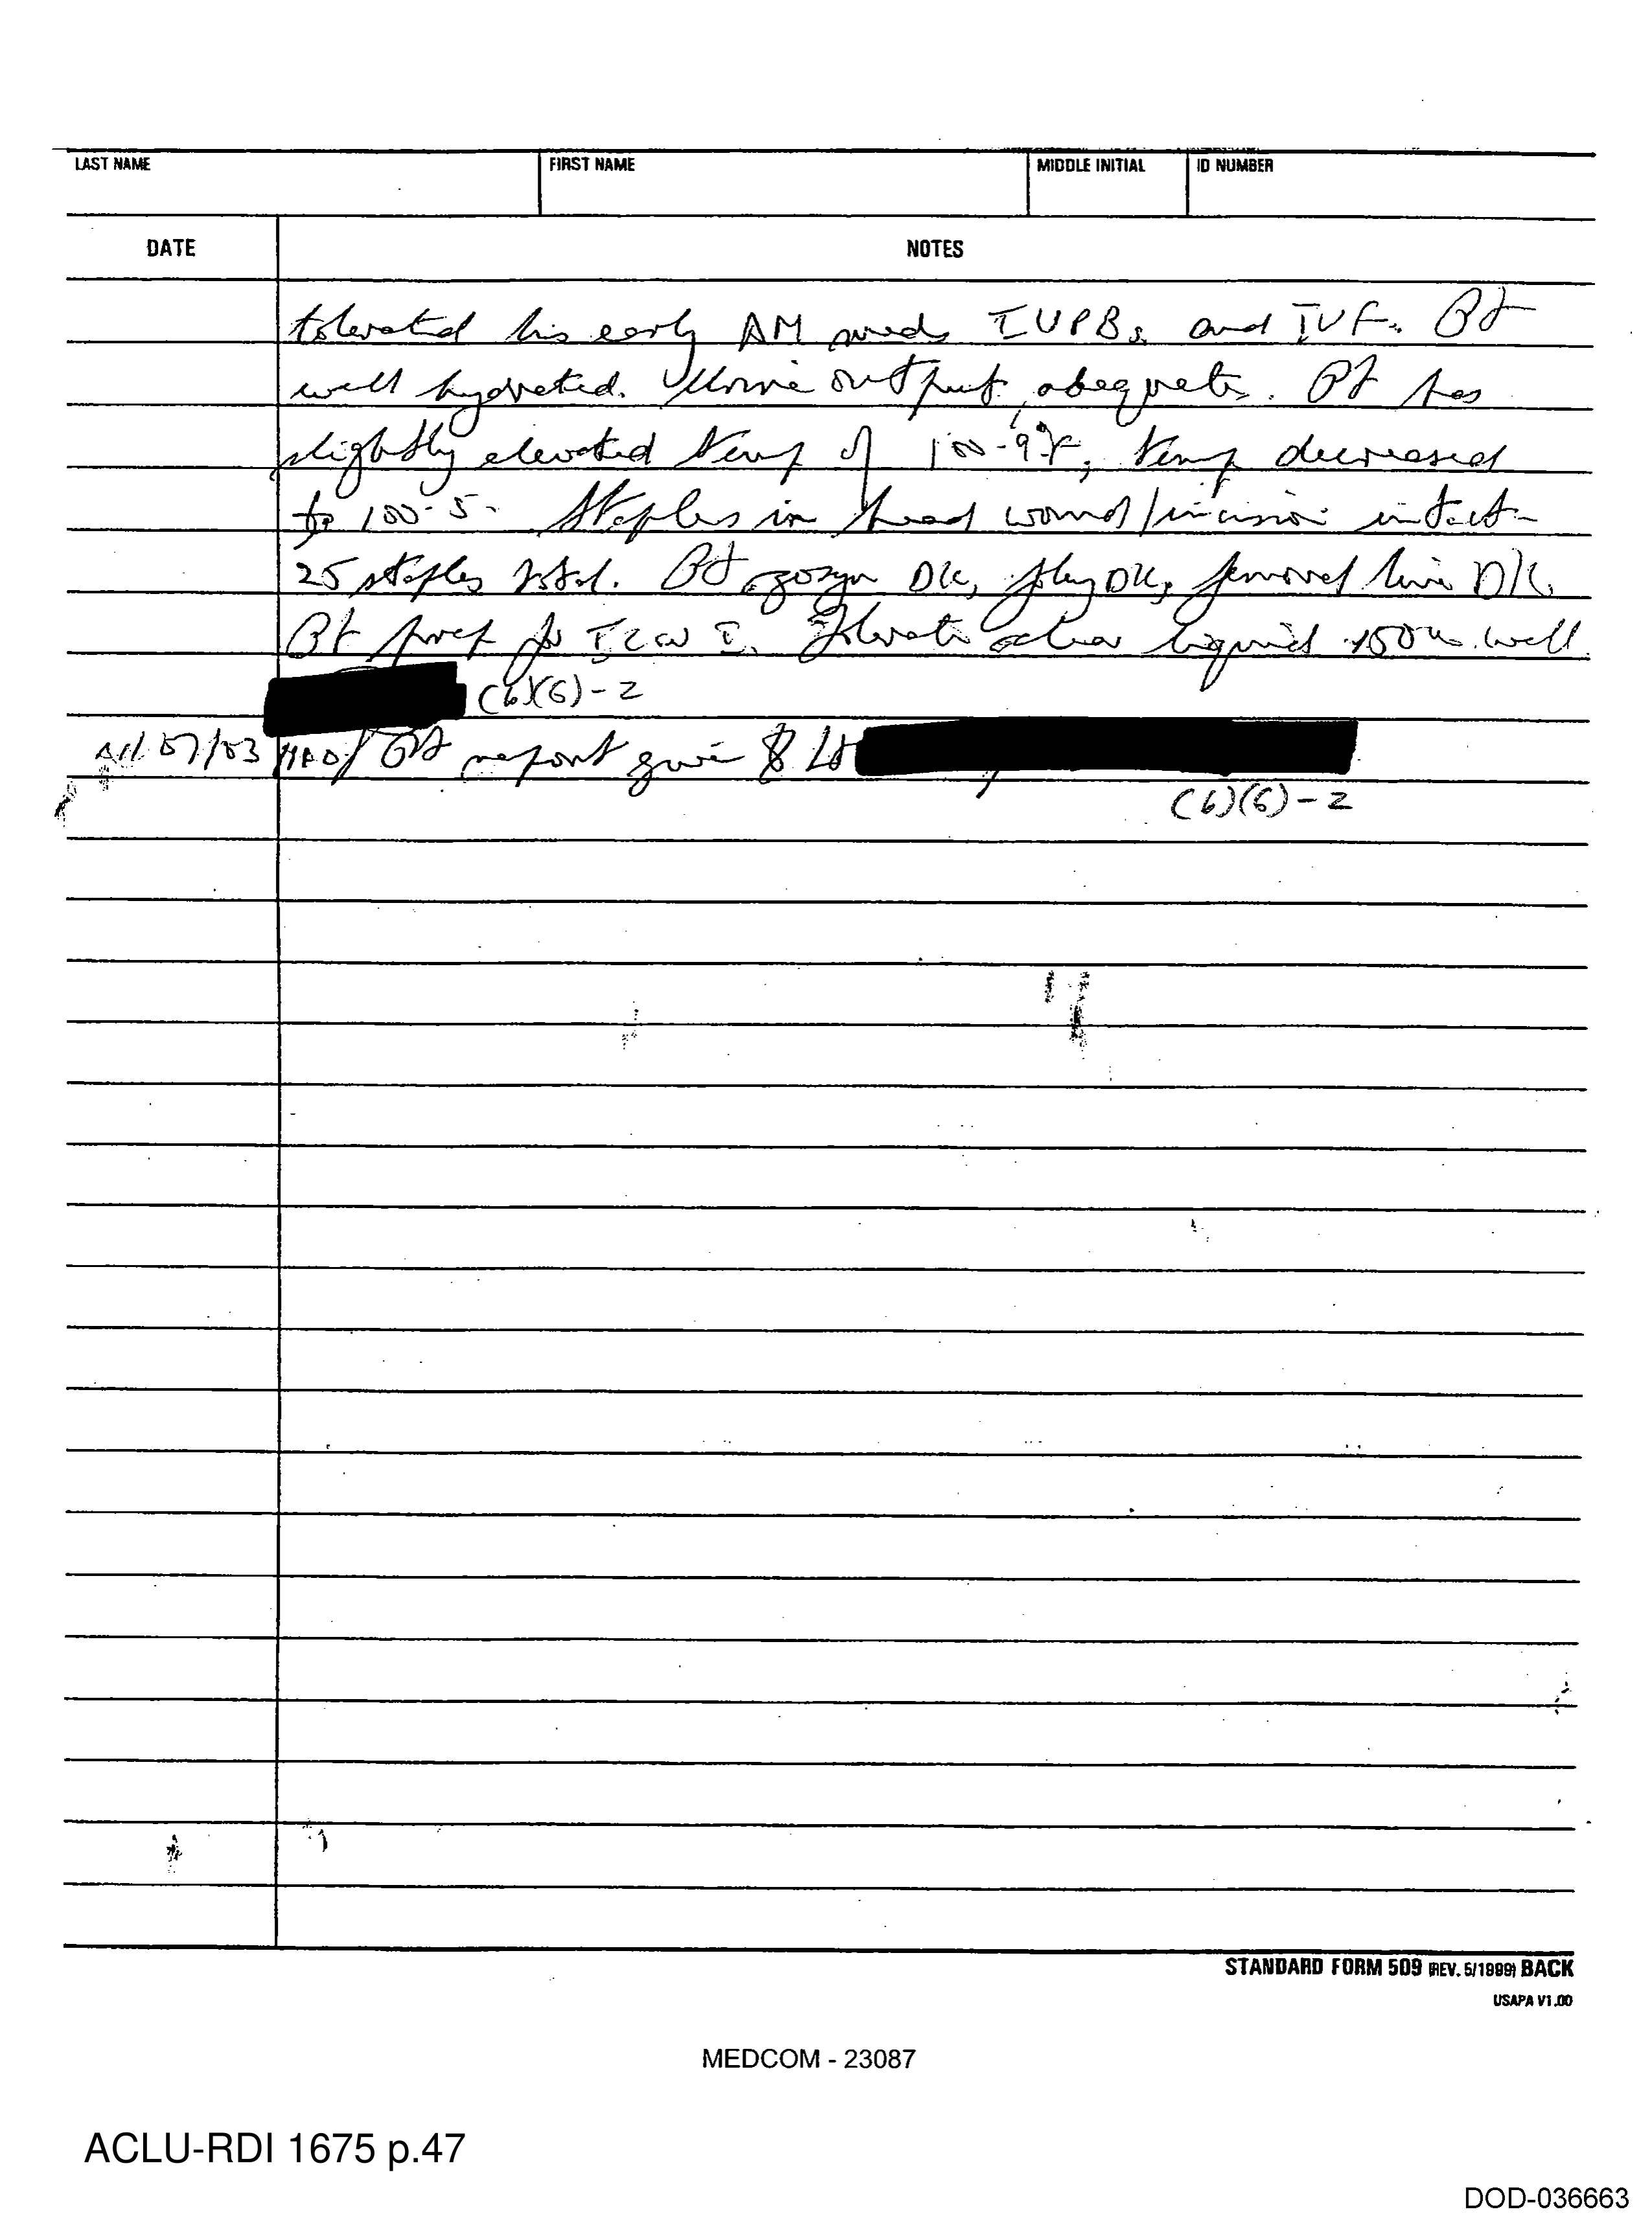 LAST NAME FIRST NAME MIDDLE INITIAL ID NUMBER
DATE NOTES
tolerated his early AM meds IVPBs and IVF. Pt
well hydrated. Urine output adequate. Pt has
slightly elevated temp of 100.9°F, temp decreased
to 100.5. Staples in head wound/incision intact
25 staples total. Pt zosyn D/C, foley D/C, femoral line D/C.
Pt prep for ICW I. Tolerate clear liquid well
(b)(6)-2
07/03 Pt report given Lt
(b)(6)-2
STANDARD FORM 509 (REV. 5/1999) BACK
USAPA V1.00
MEDCOM - 23087
ACLU-RDI 1675 p.47
DOD-036663